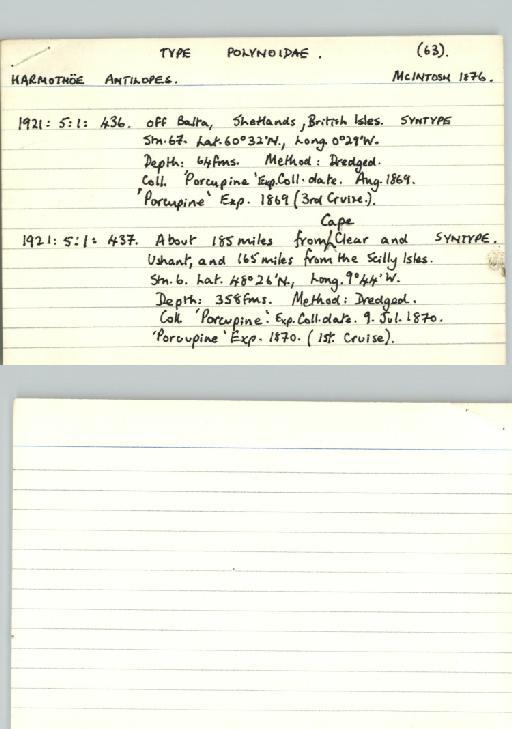 TYPE POLYNOIDAE. (63).
HARMOTHÖE ANTILOPES. McINTOSH 1876.
1921:5:1:436. off Balta, Shetlands, British Isles. SYNTYPE
Stn.67. Lat.60°32'N., Long.0°29'W.
Depth: 64fms. Method: Dredged.
Coll. 'Porcupine' Exp. Coll. date. Aug. 1869.
'Porcupine' Exp. 1869 (3rd Cruise.).
Cape
1921:5:1:437. About 185 miles from Clear and SYNTYPE.
Ushant, and 165 miles from the Scilly Isles.
Stn.6. Lat. 48°26'N., Long. 9°44'W.
Depth: 358fms. Method: Dredged.
Coll 'Porcupine'. Exp. Coll. date. 9. Jul. 1870.
'Porcupine' Exp. 1870. (1st. Cruise).